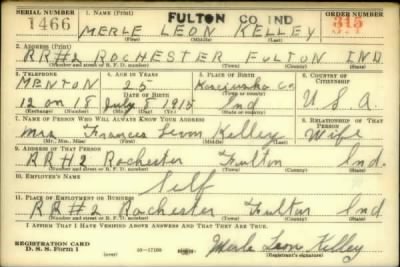 SERIAL NUMBER 1. NAME (Print) FULTON CO IND ORDER NUMBER
1466 MERLE LEON KELLEY 315
(First) (Middle) (Last)
2. ADDRESS (Print)
RR#2 ROCHESTER FULTON IND.
(Number and street or R. F. D. number) (Town) (County) (State)
3. TELEPHONE 4. AGE IN YEARS 5. PLACE OF BIRTH 6. COUNTRY OF CITIZENSHIP
MENTON 25 Kosciusko Co
DATE OF BIRTH (Town or county)
12 on 18 July 8 1915 Ind U.S.A.
(Mo.) (Day) (Yr.) (State or country)
7. NAME OF PERSON WHO WILL ALWAYS KNOW YOUR ADDRESS 8. RELATIONSHIP OF THAT PERSON
Mrs. Frances Kelley Wife
(Mr., Mrs., Miss) (First) (Middle) (Last)
9. ADDRESS OF THAT PERSON
RR#2 Rochester Fulton Ind.
(Number and street or R. F. D. number) (Town) (County) (State)
10. EMPLOYER'S NAME
Self
11. PLACE OF EMPLOYMENT OR BUSINESS
RR#2 Rochester Fulton Ind
(Number and street or R. F. D. number) (Town) (County) (State)
I AFFIRM THAT I HAVE VERIFIED ABOVE ANSWERS AND THAT THEY ARE TRUE.
REGISTRATION CARD
D. S. S. Form 1 (over) Merle Leon Kelley
(Registrant's signature)